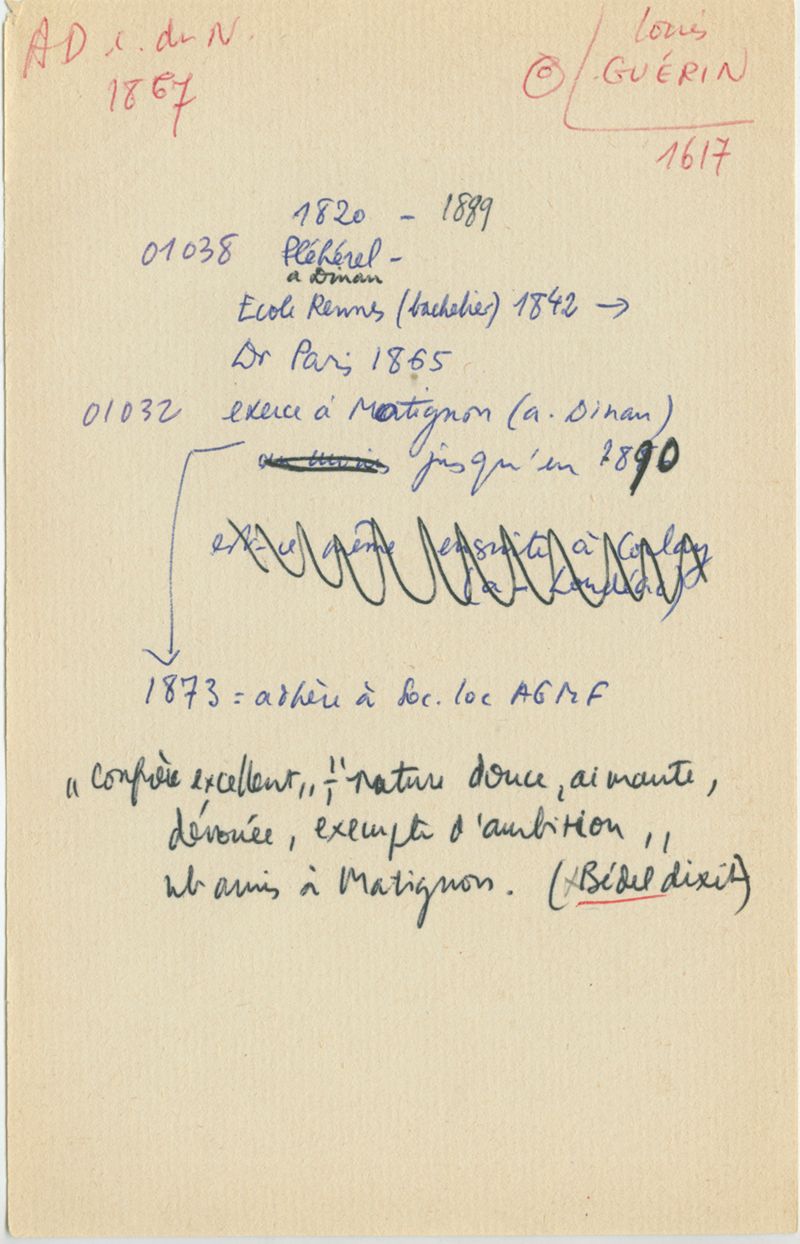 AD c. du N.
1867
© Louis
GUÉRIN
1617
1820 - 1889
01038 Pléhérel -
a Dinan
Ecole Rennes (bachelier) 1842 →
Dr Paris 1865
01032 exerce à Matignon (a. Dinan)
jusqu'en 1890
est-ce même ensuite à Corlay
(a - Loudéac)
1873 = adhère à Soc. loc AGMF
"confrère excellent", "nature douce, aimante,
dévouée, exempte d'ambition "
nb amis à Matignon. (Bédel dixit)